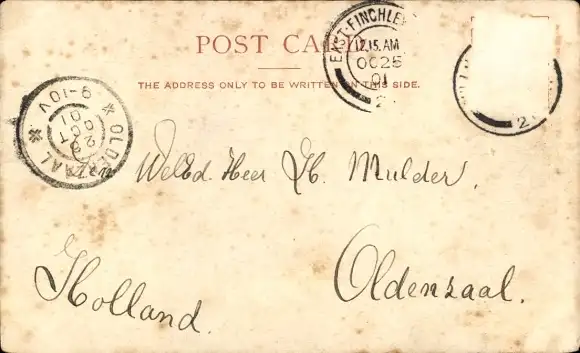 POST CA
THE ADDRESS ONLY TO BE WRITTEN ON THIS SIDE.
EAST-FINCHLEY
12.15.AM
OC 25
01
2
2
OLDENZAAL
9-10V
28 OCT
01
WelEd. Heer H. Mulder,
Oldenzaal.
Holland.